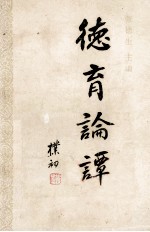 德育論譚
樸初